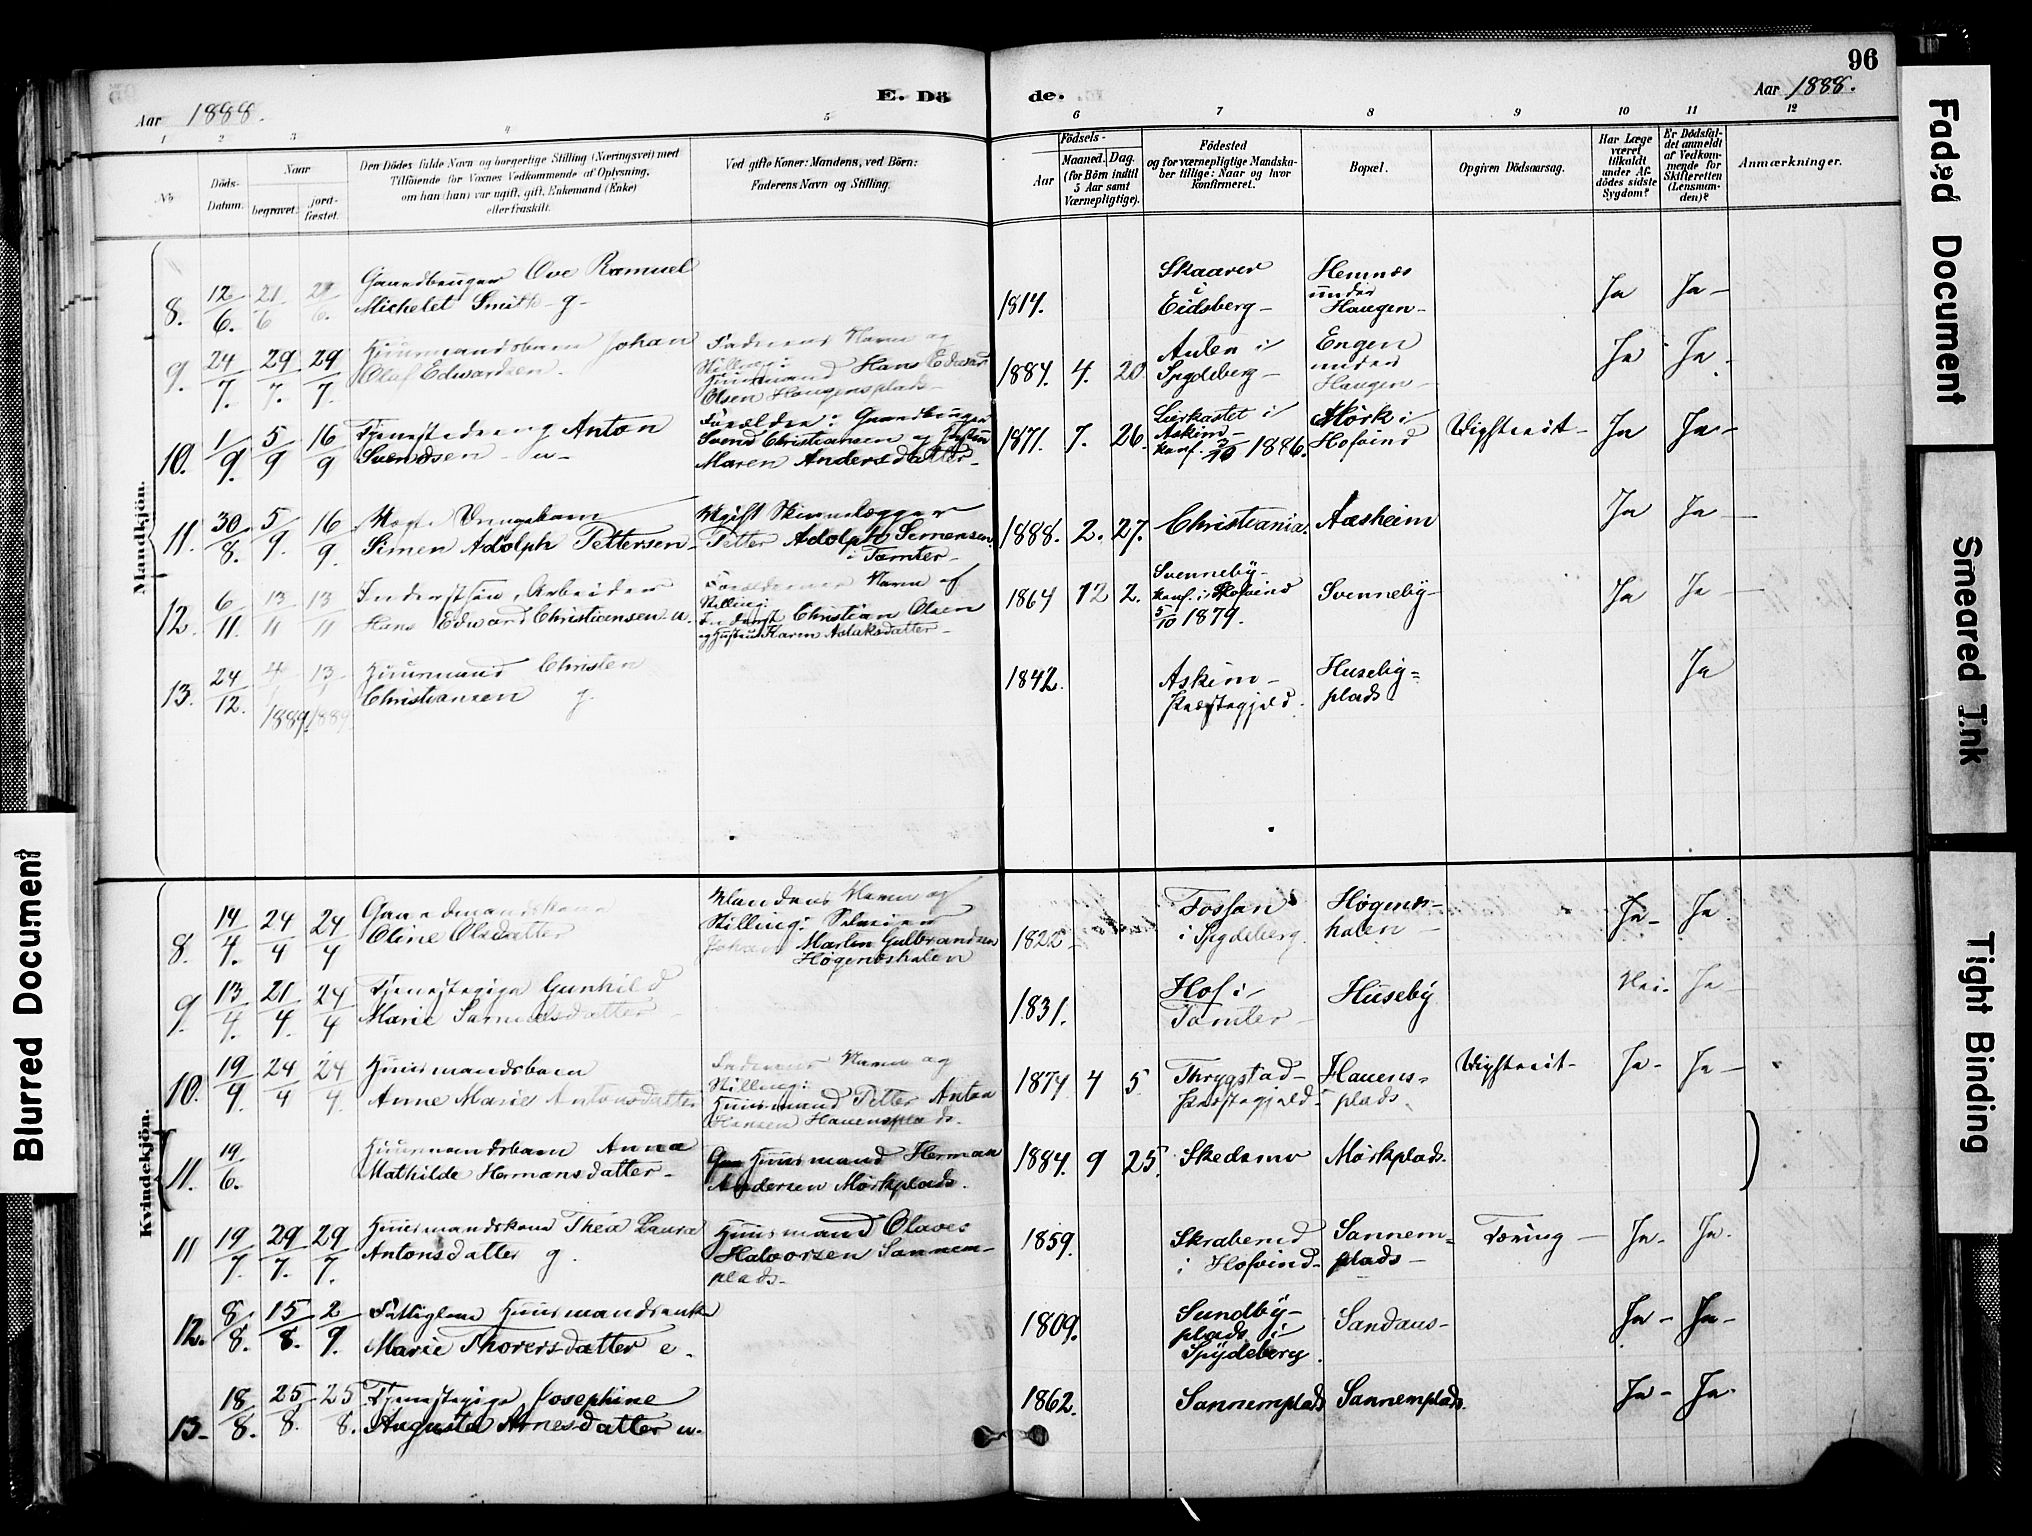 96
E. Döde.
Aar 1888.
Aar 1888.
1 2 3 4 5 6 7 8 9 10 11 12
No
Döds-
Datum.
Naar
begravet.
jord-
fæstet.
Den Dödes fulde Navn og borgerlige Stilling (Næringsvei) med
Tilföiende for Voxnes Vedkommende af Oplysning,
om han (hun) var ugift, gift, Enkemand (Enke)
eller fraskilt.
Ved gifte Koner: Mandens, ved Börn:
Faderens Navn og Stilling.
Födsels-
Aar
Maaned. Dag
(for Börn indtil
5 Aar samt
Værnepligtige).
Födested
og for værnepligtige Mandska-
ber tillige: Naar og hvor
konfirmeret.
Bopæl.
Opgiven Dödsaarsag.
Har Læge
været
tilkaldt
under Af-
dödes sidste
Sygdom?
Er Dödsfal-
det anmeldt
af Vedkom-
mende for
Skifteretten
(Lensman-
den)?
Anmærkninger.
Mandkjön.
8. 12/6. 21/6 21/6.
Gaardbruger Ove Ramuel
Michelet Smith - g-
1814.
Skaarer
i
Eidsberg-
Hemnæs
under
Haugen-
Ja Ja-
9. 24/7. 29/7. 29/7.
Huusmandsbarn Johan
Olaf Edwardsen.
Faderens Navn og
Stilling:
Huusmand Hans Edward
Olsen Haugensplads
1884. 4. 20
i
Spydeberg-
Engen
under
Haugen-
Ja Ja-
10. 1/9. 5/9 16/9
Tjenestedreng Anton
Svendsen - u-
Forældre: Gaardbruger
Svend Christiansen og Hustru
Maren Andersdatter-
1871. 7. 26.
i
Askim-
konf. 3/10 1886.
Mörk i
Hofvind
Ja Ja-
11. 30/8. 5/9. 16/9.
Simen Adolph Pettersen-
Ugift
Petter Adolph Simensen
i Tomter-
1888. 2. 27.
Christiania.
Aasheim
Ja Ja-
12. 6/11. 13/11 13/11
Arbeider
Hans Edward Christiansen-u.
Forældrenes Navn og
Stilling:
Christian Olsen
og Hustru Karen Aslaksdatter-
1864 12 2.
Svenneby-
konf. i Hofvind
5/10 1879.
Svenneby-
Ja Ja-
13. 24/12. 4/1 1889. 13/1 1889.
Huusmand Christen
Christiansen g.
1842.
Askim-
Præstegjeld.
Huseby-
plads
Ja
Kvindekjön.
8. 14/4. 24/4 24/4
Gaardmandskone
Oline Olsdatter
Mandens Navn og
Stilling: Selveier
Johan Martin Gulbrandsen
Högenshalen
1822
Fossan
i Spydeberg.
Högens-
halen-
Ja- Ja.
9. 13/4. 21/4. 24/4
Tjenestepige Gunhild
Marie Samuelsdatter-
1831.
Hof i
Tomter-
Huseby
Nei. Ja-
10. 19/9. 24/4 24/4.
Huusmandsbarn
Anne Marie Antonsdatter
Faderens Navn og
Stilling:
Huusmand Petter Anton
Hansen Hauensplads.
1874 4 5
Thrygstad-
Præstegjeld-
Hauens-
plads.
Ja- Ja-
11. 19/6.
Huusmandsbarn Anna
Mathilde Hermansdatter-
Huusmand Herman
Andersen Mörkplads.
1884. 9 25.
Skedsmo
Mörkplads.
11 19/7. 29/7. 29/7.
Huusmandskone Thea Laura
Antonsdatter g.
Huusmand Olaves
Halvorsen Sannem-
plads-
1859.
Skraberud
i Hofvind-
Sannem-
plads-
Tæring-
Ja- Ja.
12. 8/8. 15/8. 2/9.
Fattiglem Huusmandsenke
Marie Thorersdatter e.
1809.
Sundby-
plads i
Spydeberg.
Sandaus-
Ja- Ja-
13- 18/8. 25/8. 25/8.
Tjenestepige Josephine
Augusta Arnesdatter u.
1862.
Sannemplads
Sannemplads.
Ja- Ja-
Faded Document
Smeared Ink
Tight Binding
Blurred Document